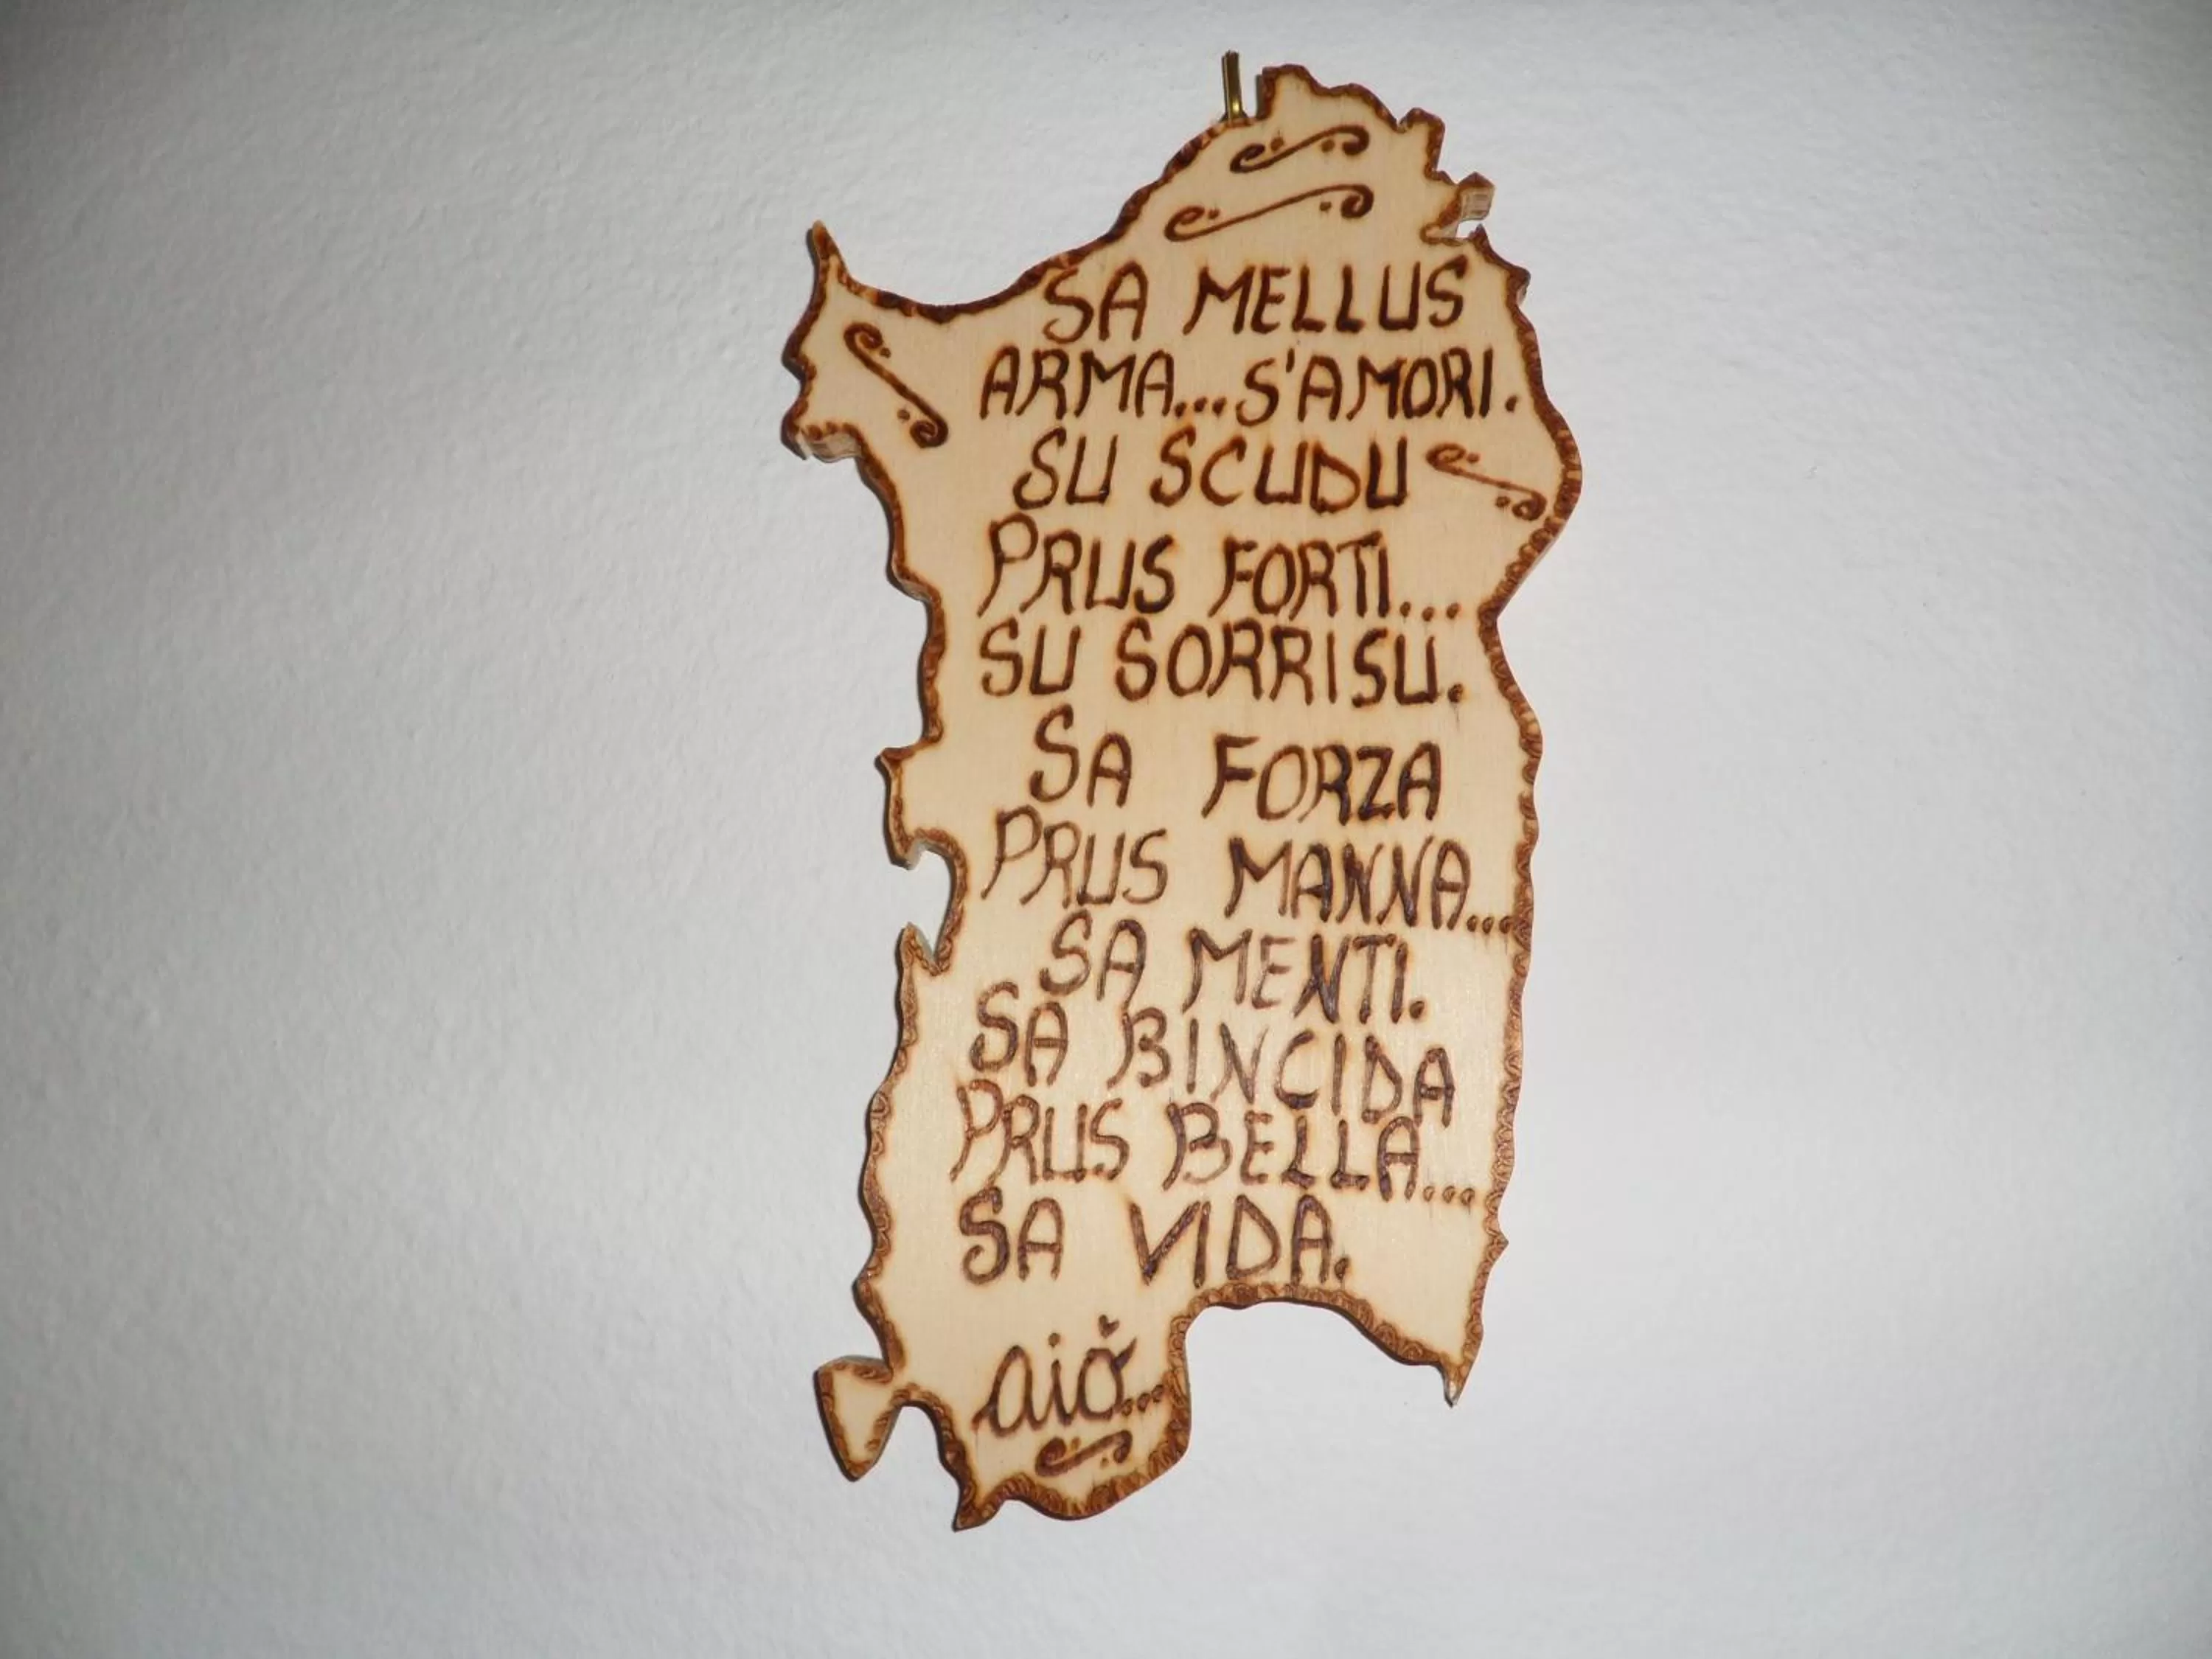 SA MELLUS
ARMA...S'AMORI.
SU SCUDU
PRUS FORTI...
SU SORRISU.
SA FORZA
PRUS MANNA...
SA MENTI.
SA BINCIDA
PRUS BELLA...
SA VIDA.
aiò...